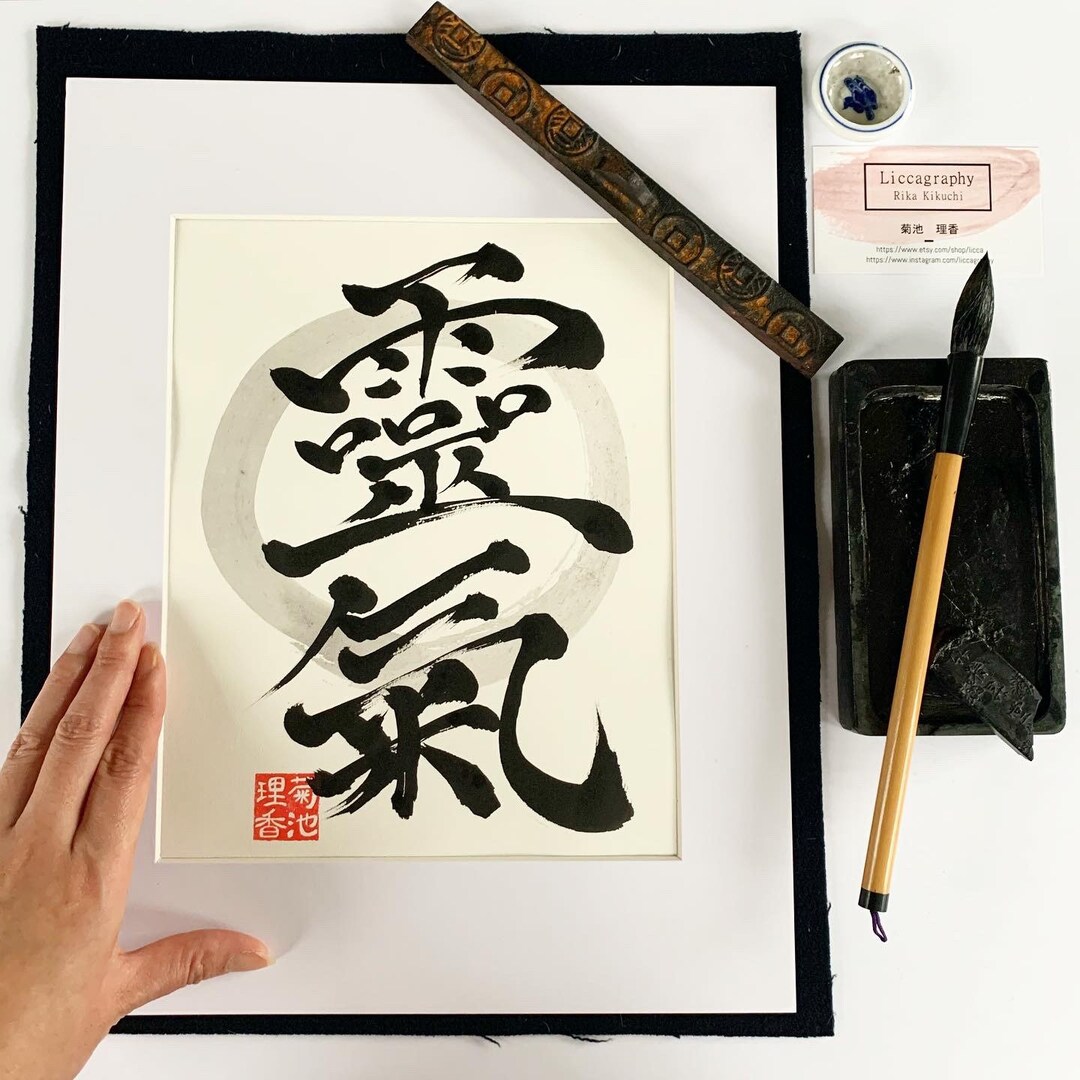 靈
氣
菊池
理香
Liccagraphy
Rika Kikuchi
菊池　理香
https://www.etsy.com/shop/licca
https://www.instagram.com/liccag